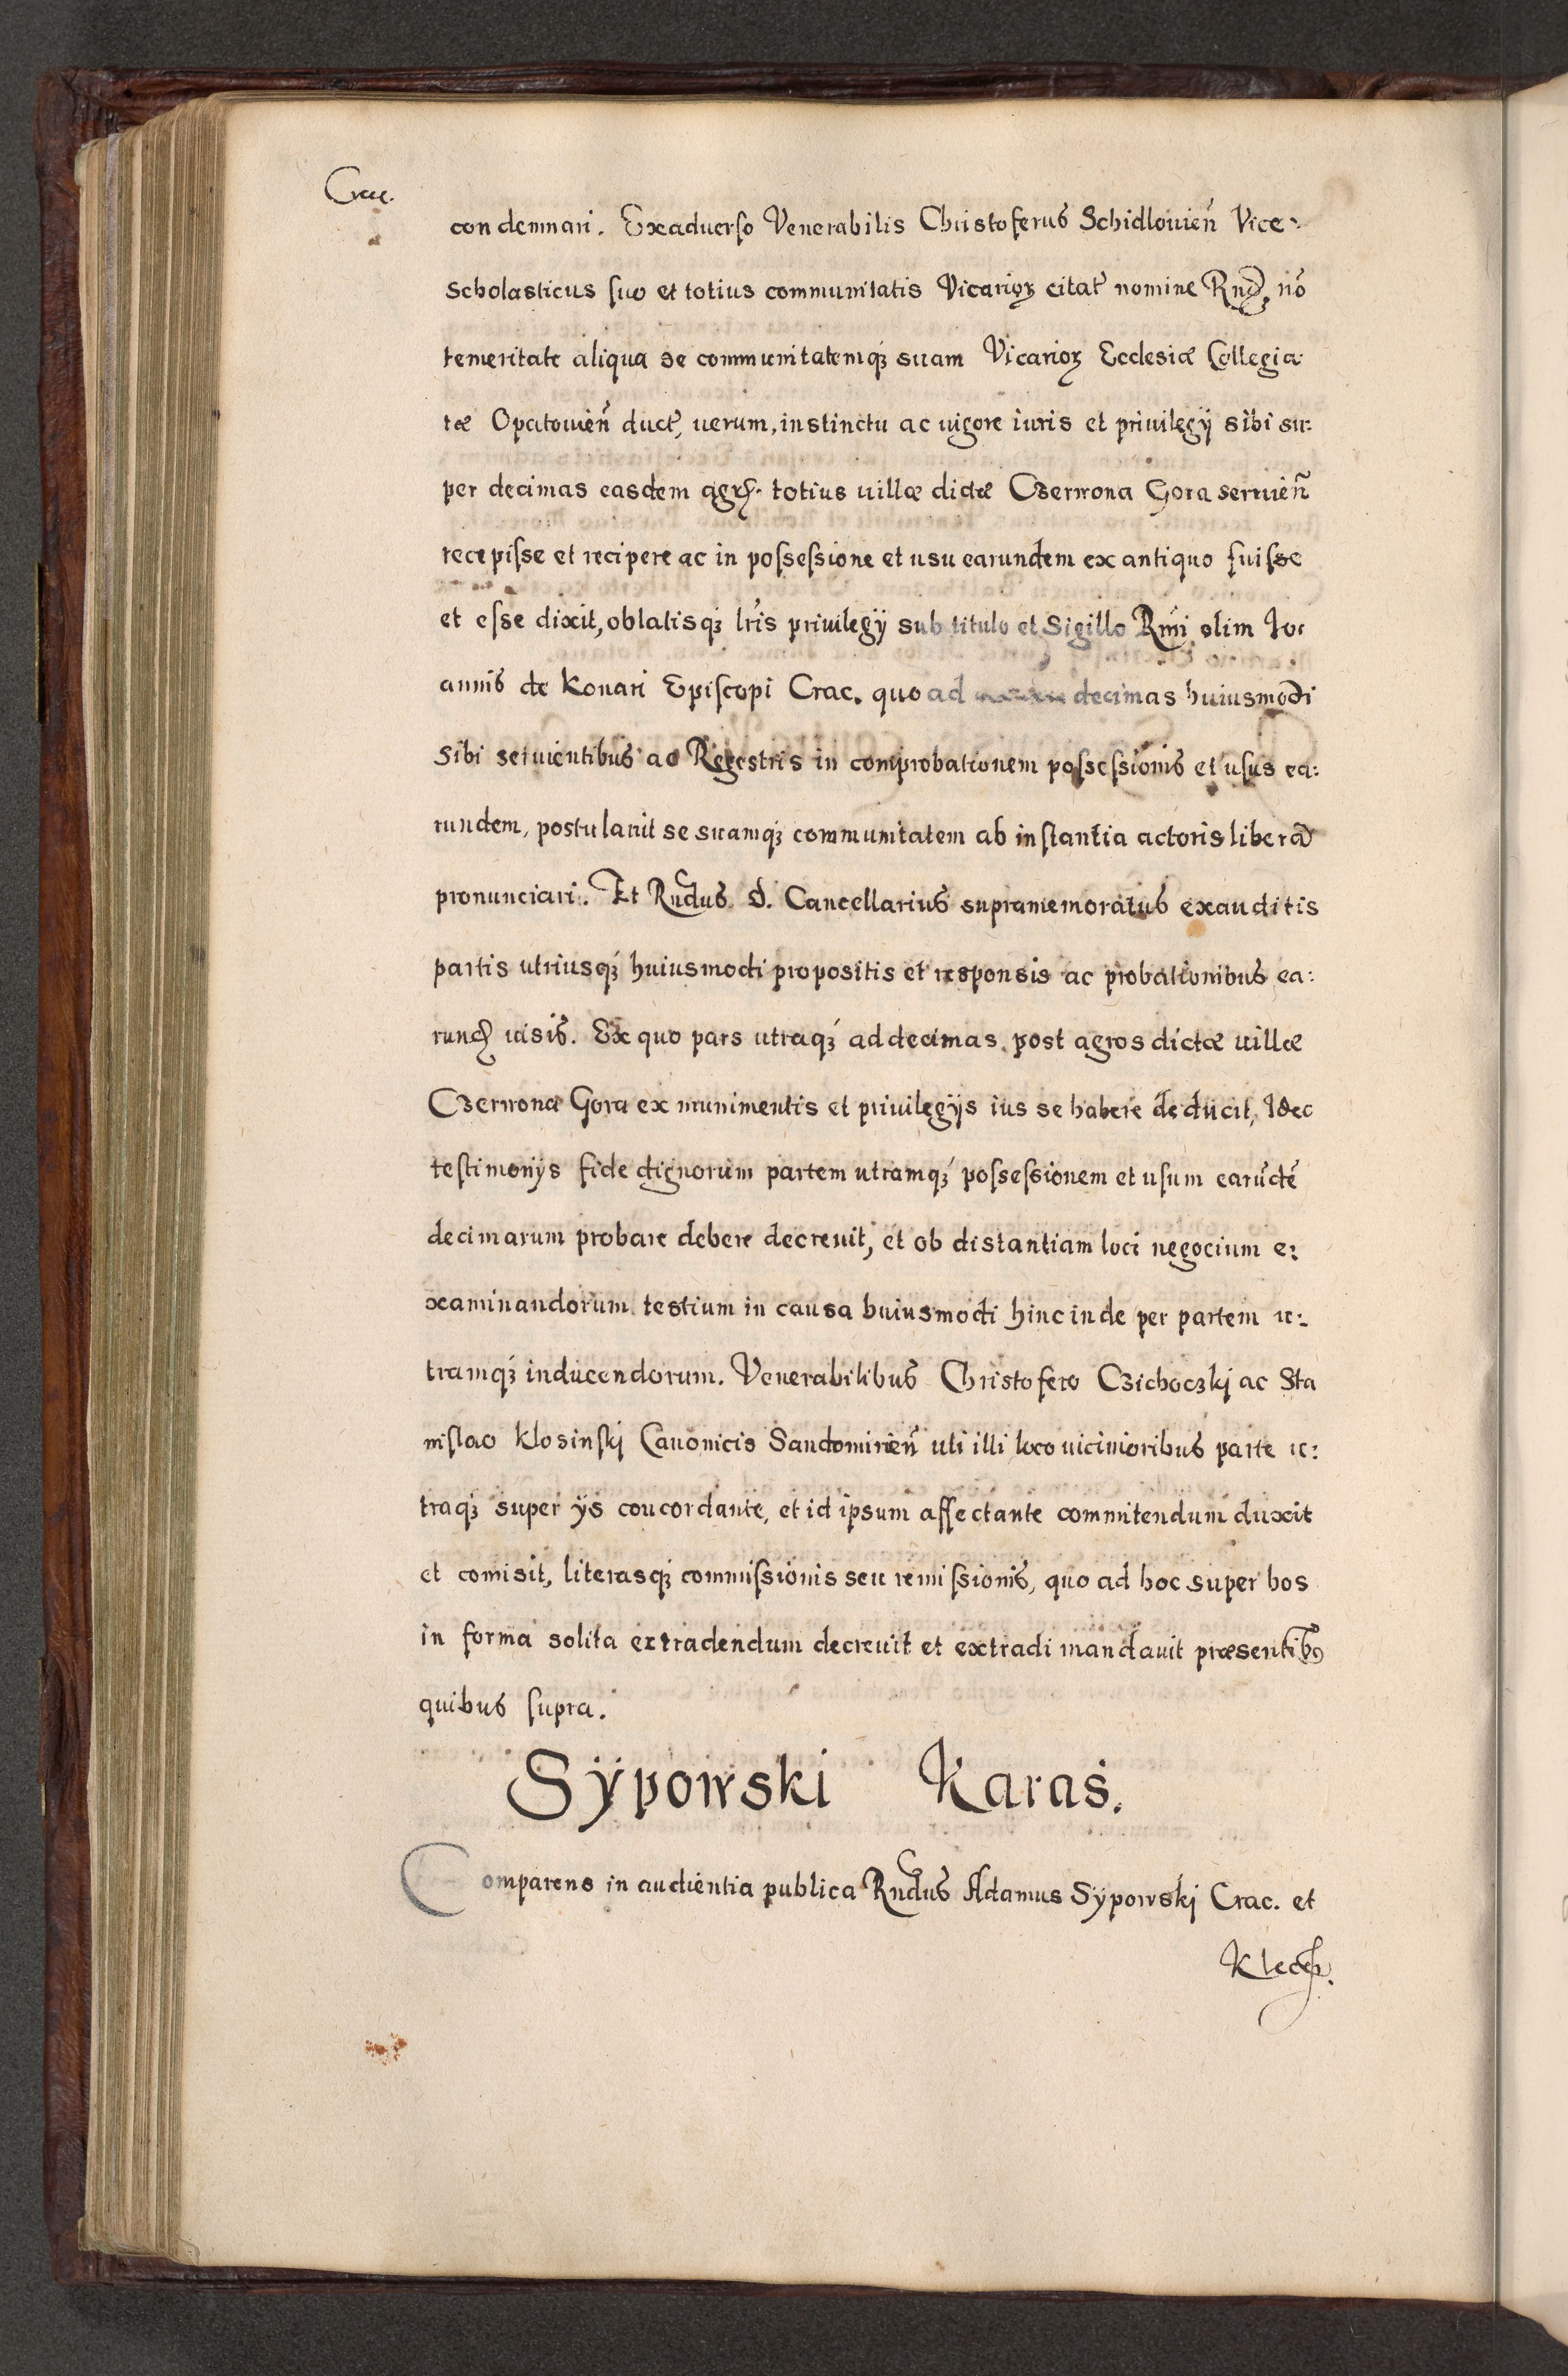 Crac.
condemnari. Exaduerso Venerabilis Christoferus Schidlouien̄ Vice:
scholasticus suo et totius communitatis Vicarioꝝ citat̃ nomine Rnd. nō
temeritate aliqua se communitatemqꝫ suam Vicarioꝝ Ecclesiæ Collegia
tæ Opatouien̄ duct̃, uerum, instinctu ac uigore iuris et priuilegij sibi su:
per decimas easdem agr. totius uillæ dictæ Czerwona Gora seruien̄
recepisse et recipere ac in possessione et usu earundem ex antiquo fuisse
et esse dixit, oblatisqꝫ lr̃is priuilegij sub titulo et Sigillo Rmi olim Io
annis de Konari Episcopi Crac. quo ad decimas huiusmodi
sibi seruientibus ac Regestris in comprobationem possessionis et usus ea:
rundem, postulauit se suamqꝫ communitatem ab instantia actoris liberā
pronunciari. Et Rndus D. Cancellarius supramemoratus exauditis
partis utriusqꝫ huiusmodi propositis et responsis ac probationibus ea:
rund uisis. Ex quo pars utraqꝫ ad decimas post agros dictæ uillæ
Czerwona Gora ex munimentis et priuilegijs ius se habere deducit, Ideo
testimonijs fide dignorum partem utramqꝫ possessionem et usum earūdē
decimarum probare debere decreuit, et ob distantiam loci negocium e:
xaminandorum testium in causa huiusmodi hinc inde per partem u:
tramqꝫ inducendorum. Venerabilibus Christofero Czichoczkj ac Sta
nislao Klosinskj Canonicis Sandomirien̄ uti illi loco uicinioribus parte u:
traqꝫ super ijs concordante, et id ipsum affectante committendum duxit
et comisit, literasqꝫ commissionis seu remissionis, quo ad hoc super hos
in forma solita extradendum decreuit et extradi mandauit præsentibꝰ
quibus supra.
Sÿpowski Karas.
Comparens in audientia publica Rndus Adamus Sÿpowskj Crac. et